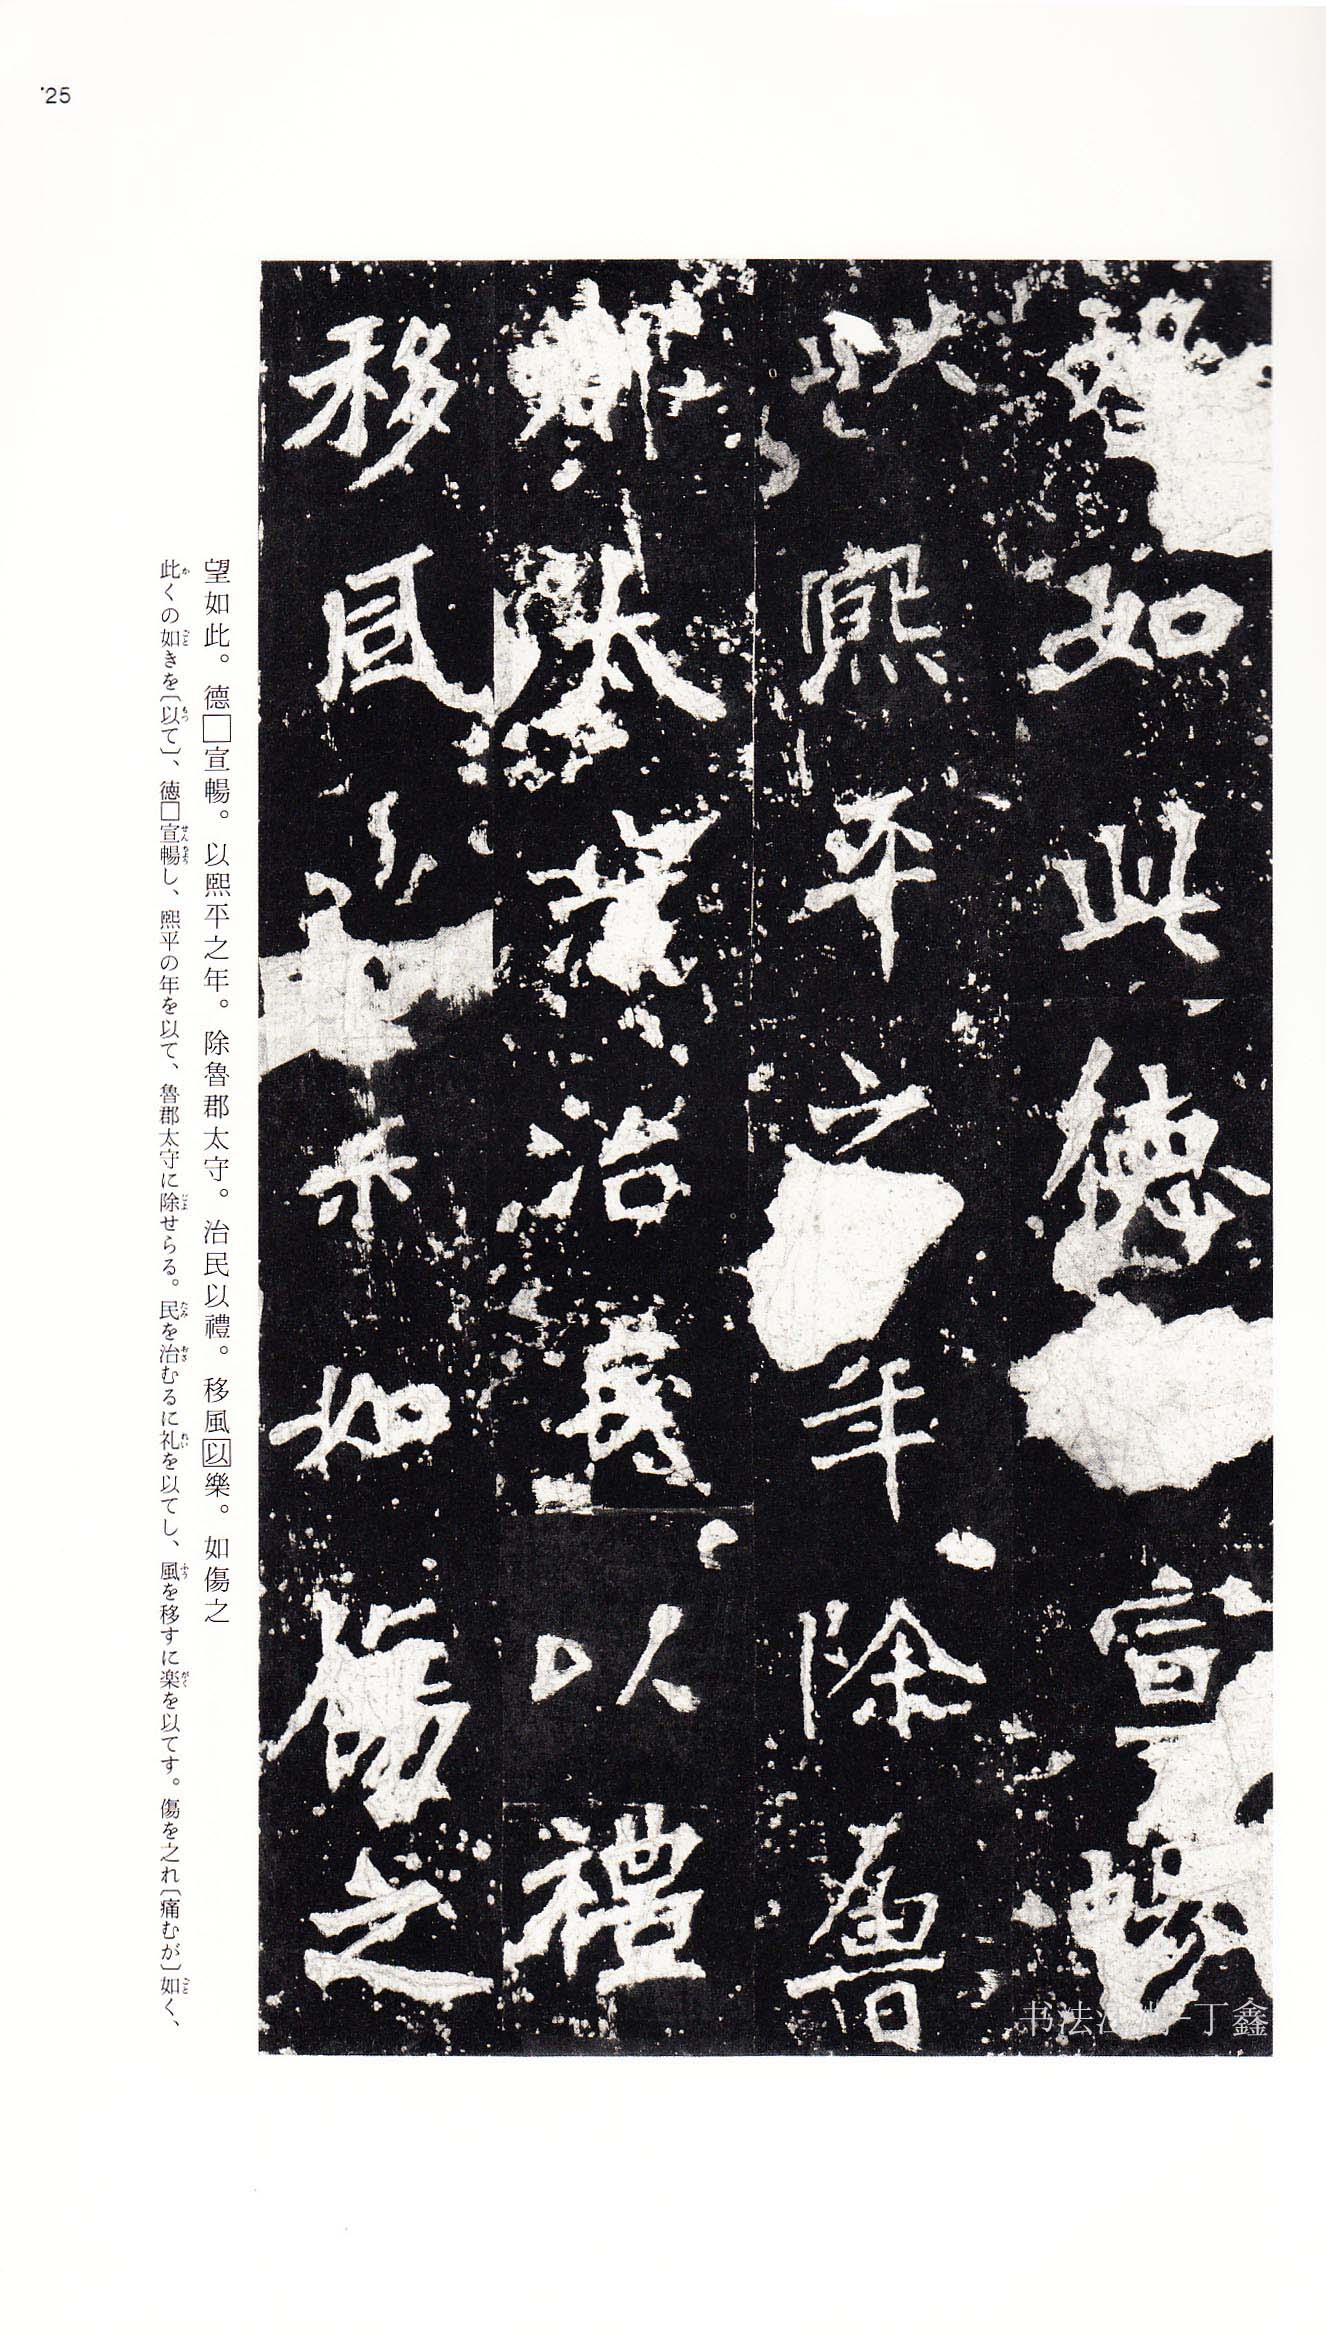 25
望如此德宣暢
以熙平之年除魯
郡太守治民以禮
移風以樂如傷之
望如此。德□宣暢。以熙平之年。除魯郡太守。治民以禮。移風以樂。如傷之
此くの如きを〔以て〕、徳□宣暢し、熙平の年を以て、魯郡太守に除せらる。民を治むるに礼を以てし、風を移すに楽を以てす。傷を之れ〔痛むが〕如く、
书法江湖-丁鑫